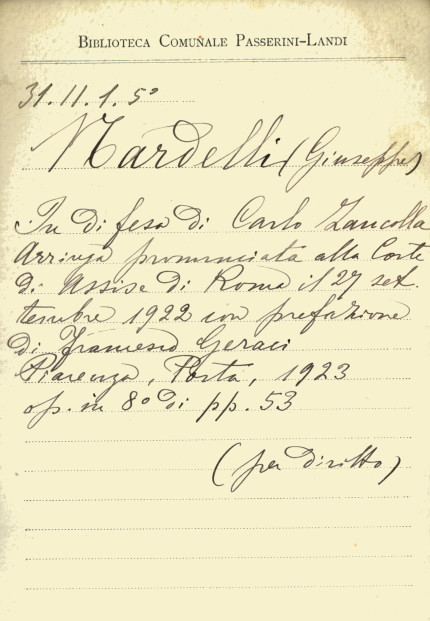 BIBLIOTECA COMUNALE PASSERINI-LANDI
31.11.1.5º
Nardelli (Giuseppe)
In difesa di Carlo Zancolla
Arringa pronunciata alla Corte
di Assise di Roma il 27 set.
tembre 1922 con prefazione
di Francesco Geraci
Piacenza, Porta, 1923
op. in 8º di pp. 53
(per diritto)